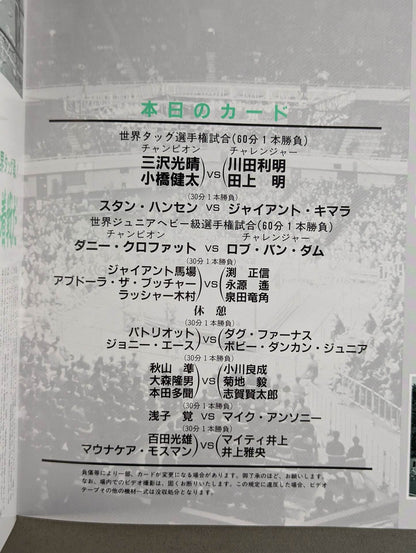 本日のカード
世界タッグ選手権試合(60分1本勝負)
チャンピオン チャレンジャー
三沢光晴 小橋健太 vs 川田利明 田上 明
(30分1本勝負)
スタン・ハンセン vs ジャイアント・キマラ
世界ジュニアヘビー級選手権試合(60分1本勝負)
チャンピオン チャレンジャー
ダニー・クロファット vs ロブ・バン・ダム
(30分1本勝負)
ジャイアント馬場 渕 正信
アブドーラ・ザ・ブッチャー vs 永源 遙
ラッシャー木村 泉田竜角
休憩
(30分1本勝負)
パトリオット ジョニー・エース vs ダグ・ファーナス ボビー・ダンカン・ジュニア
(30分1本勝負)
秋山 準 小川良成
大森隆男 vs 菊地 毅
本田多聞 志賀賢太郎
(30分1本勝負)
浅子 覚 vs マイク・アンソニー
(30分1本勝負)
百田光雄 マウナケア・モスマン vs マイティ井上 井上雅央
負傷等により一部、カードが変更になる場合があります。御了承のほど、お願いします。
なお、場内でのビデオ撮影は、固くお断りいたします。この規定に違反した場合、ビデオ
テープその他の機材一式は没収処分となります。